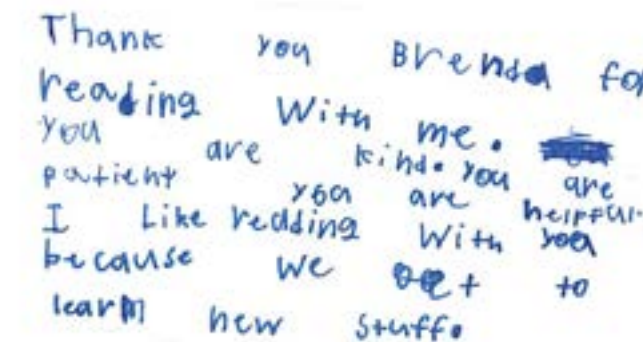 Thank you Brenda for
reading With me.
you are kind. you are
patient you are helpful.
I Like reading With you
because we get to
learn new stuff.